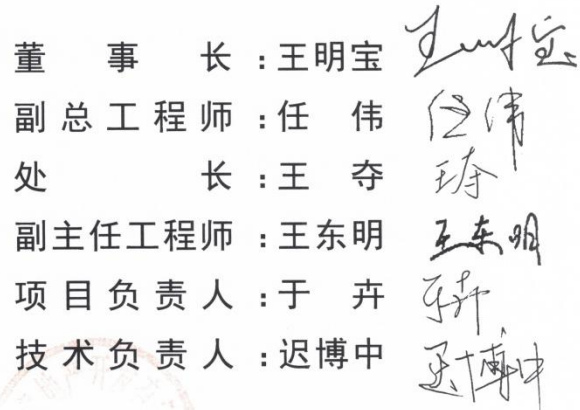 董事长:王明宝 王明宝
副总工程师:任伟 任伟
处长:王夺 王夺
副主任工程师:王东明 王东明
项目负责人:于卉 于卉
技术负责人:迟博中 迟博中